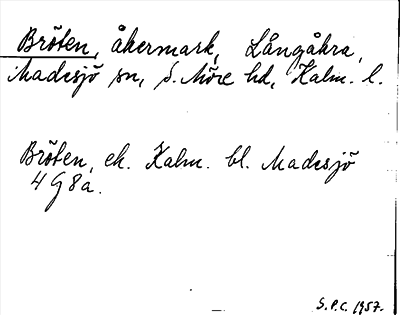 Bröten, åkermark, Långåkra,
Madesjö sn, S. Möre hd, Kalm. l.
Bröten, ek. Kalm. bl. Madesjö
4 G 8 a.
S.P.C. 1957.